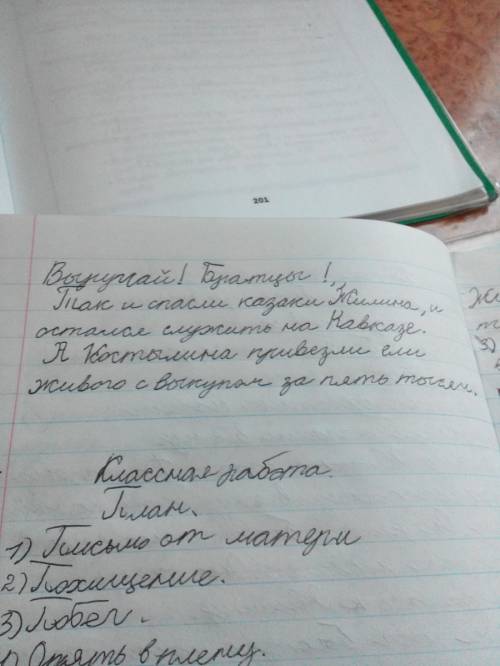 201
Выручай! Братцы!
Так и спасли казаки Жилина, и
остался служить на Кавказе.
А Костылина привезли ели
живого с выкупом за пять тысяч.
Классная работа.
План.
1) Письмо от матери
2) Похищение.
3) Побег.
Опять в плену.
3)